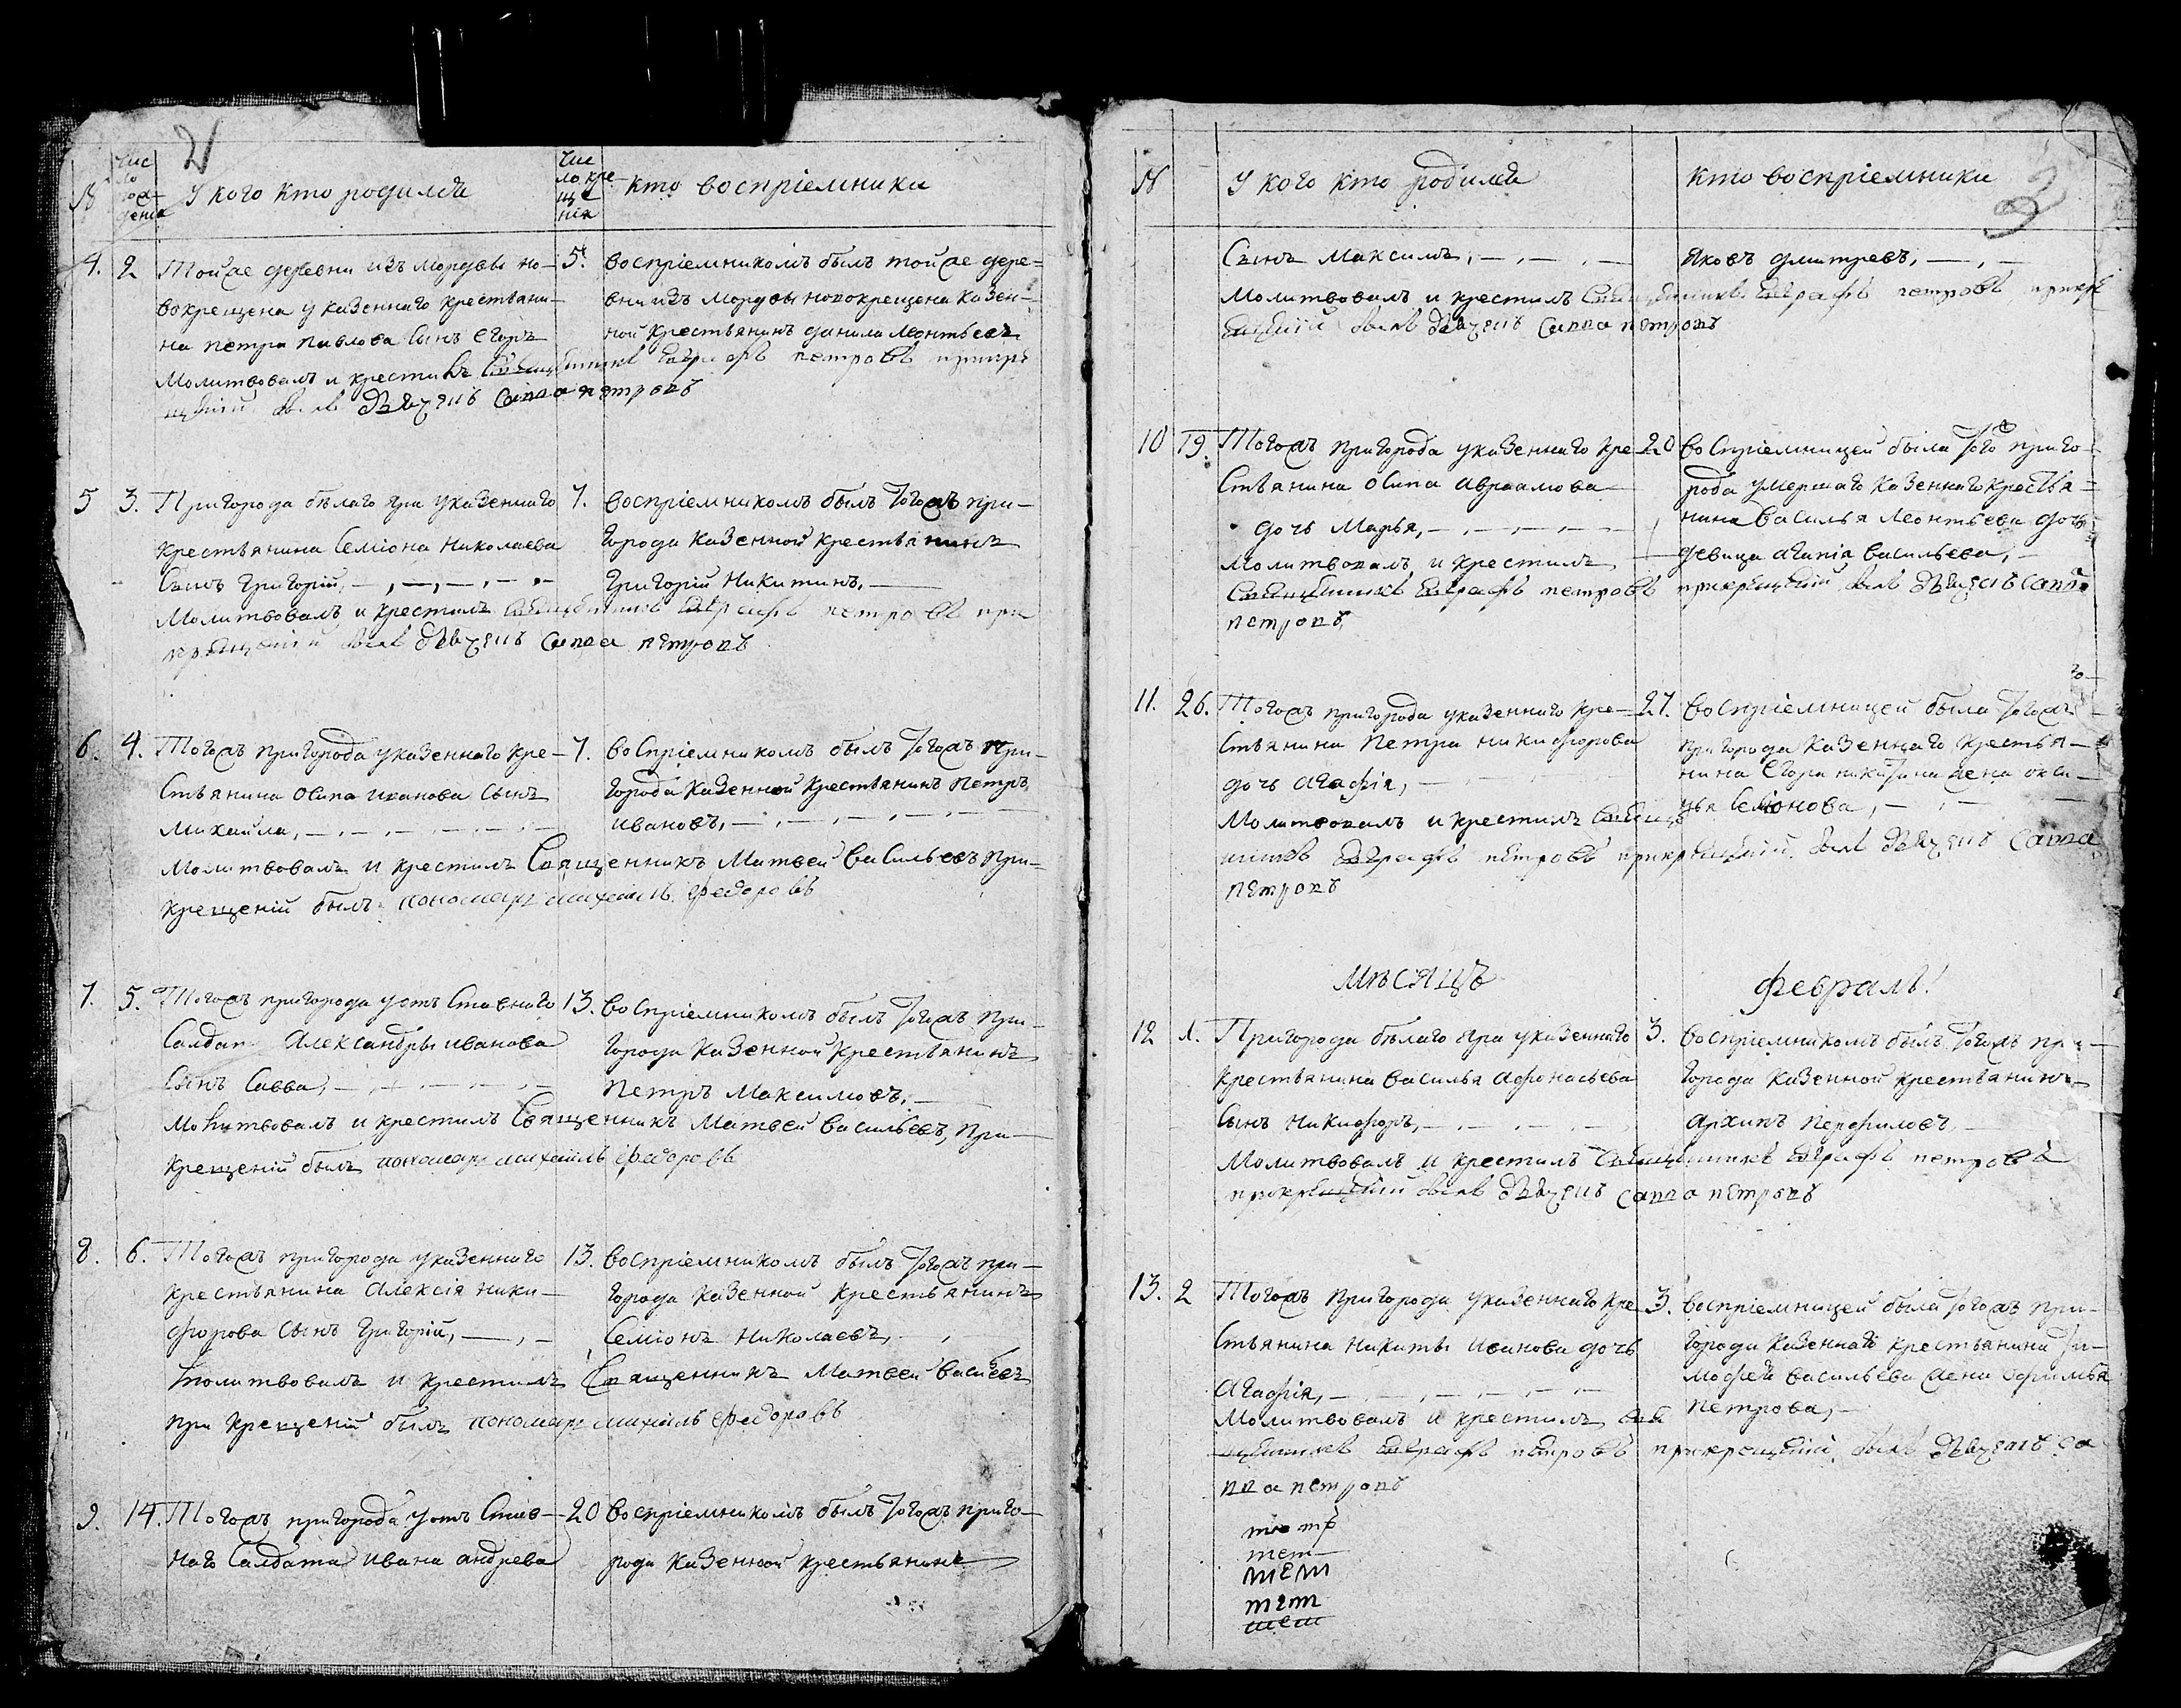 2
№
Чис
ло
рож-
дения
У кого кто родился
Чис
ло кре
ще
нія
кто воспріемники
4. 2 Тойже деревни изъ мордвы но-
вокрещена у казеннаго крестьяни-
на петра павлова сынъ Егоръ
Молитвовалъ и крестилъ Священникъ Евграфъ петровъ прикре
щеніи былъ дьячекъ Савва петровъ
5. воспріемникомъ былъ тойже дере=
вни изъ мордвы новокрещенъ казен-
ной крестьянинъ данила леонтьевъ
5 3. Пригорода бѣлаго яра у казеннаго
крестьянина Семіона Николаева
Сынъ Григорій,
Молитвовалъ и крестилъ Священникъ Евграфъ петровъ при
крещеніи былъ дьячекъ Савва петровъ
7. воспріемникомъ былъ тогожъ при-
города казенной крестьянинъ
Григорій Никитинъ,
6. 4. Тогожъ пригорода у казеннаго кре-
стьянина Осипа иванова сынъ
михаила,
молитвовалъ и крестилъ Священникъ Матвей васильевъ при-
крещеній былъ пономарь михаилъ федоровъ
7. воспріемникомъ былъ тогожъ при-
города казенной крестьянинъ Петръ
ивановъ,
7. 5. Тогожъ пригорода у отъ ставнаго
Салдат Александры иванова
Сынъ Савва,
Молитвовалъ и крестилъ Священникъ Матвей васильевъ, при-
крещеній былъ пономарь михаилъ федоровъ
13. воспріемникомъ былъ тогожъ при-
города казенной крестьянинъ
Петръ Максимовъ,
8. 6. Тогожъ пригорода у казеннаго
крестьянина Алексія ники-
форова сынъ Григорій,
молитвовалъ и крестилъ Священникъ Матвей васильевъ
при крещеній былъ пономарь михаилъ федоровъ
13. воспріемникомъ былъ тогожъ при-
города казенной крестьянинъ
Семіонъ Николаевъ,
9. 14. Тогожъ пригорода у отъ став-
наго Салдата ивана андреева
20 воспріемникомъ былъ тогожъ приго-
рода казенной крестьянинъ
3
№
У кого кто родился
кто воспріемники
Сынъ Максимъ,
Яковъ дмитревъ,
молитвовалъ и крестилъ Священникъ Евграфъ петровъ прикре
щеніи былъ дьячекъ Савва петровъ
10 19. Тогожъ пригорода у казеннаго кре-
стьянина Осипа авраамова
дочь Марья,
молитвовалъ и крестилъ
Священникъ Евграфъ петровъ прикрещеніи былъ дьячекъ Савва
петровъ
20 воспріемницей была того приго-
рода умершаго казеннаго крестья=
нина василья леонтьева дочь
девица агапія васильева,
11. 26. Тогожъ пригорода у казеннаго кре-
стьянина Петра никифорова
дочь агафія,
Молитвовалъ и крестилъ Священ
никъ Евграфъ петровъ прикрещеніи былъ дьячекъ Савва
петровъ
27. воспріемницей была тогожъ
пригорода казеннаго крестья-
нина Егора никитина жена
Семіонова,
мѣсяцъ февраль!
12 1. Пригорода бѣлаго яра у казеннаго
крестьянина василья афонасьева
сынъ никифоръ,
молитвовалъ и крестилъ Священникъ Евграфъ петровъ
прикрещеніи былъ дьячекъ Савва петровъ
3. воспріемникомъ былъ тогожъ при-
города казенной крестьянинъ
архипъ перфиловъ,
13. 2 Тогожъ пригорода у казеннаго кре
стьянина никиты иванова дочь
агафія,
молитвовалъ и крестилъ Свя
щенникъ Евграфъ петровъ прикрещеніи былъ дьячекъ Са
вва петровъ
3. воспріемницей была тогожъ при-
города казеннаго крестьянина ти-
мофея васильева жена офимья
петрова,
тет
тет
тет